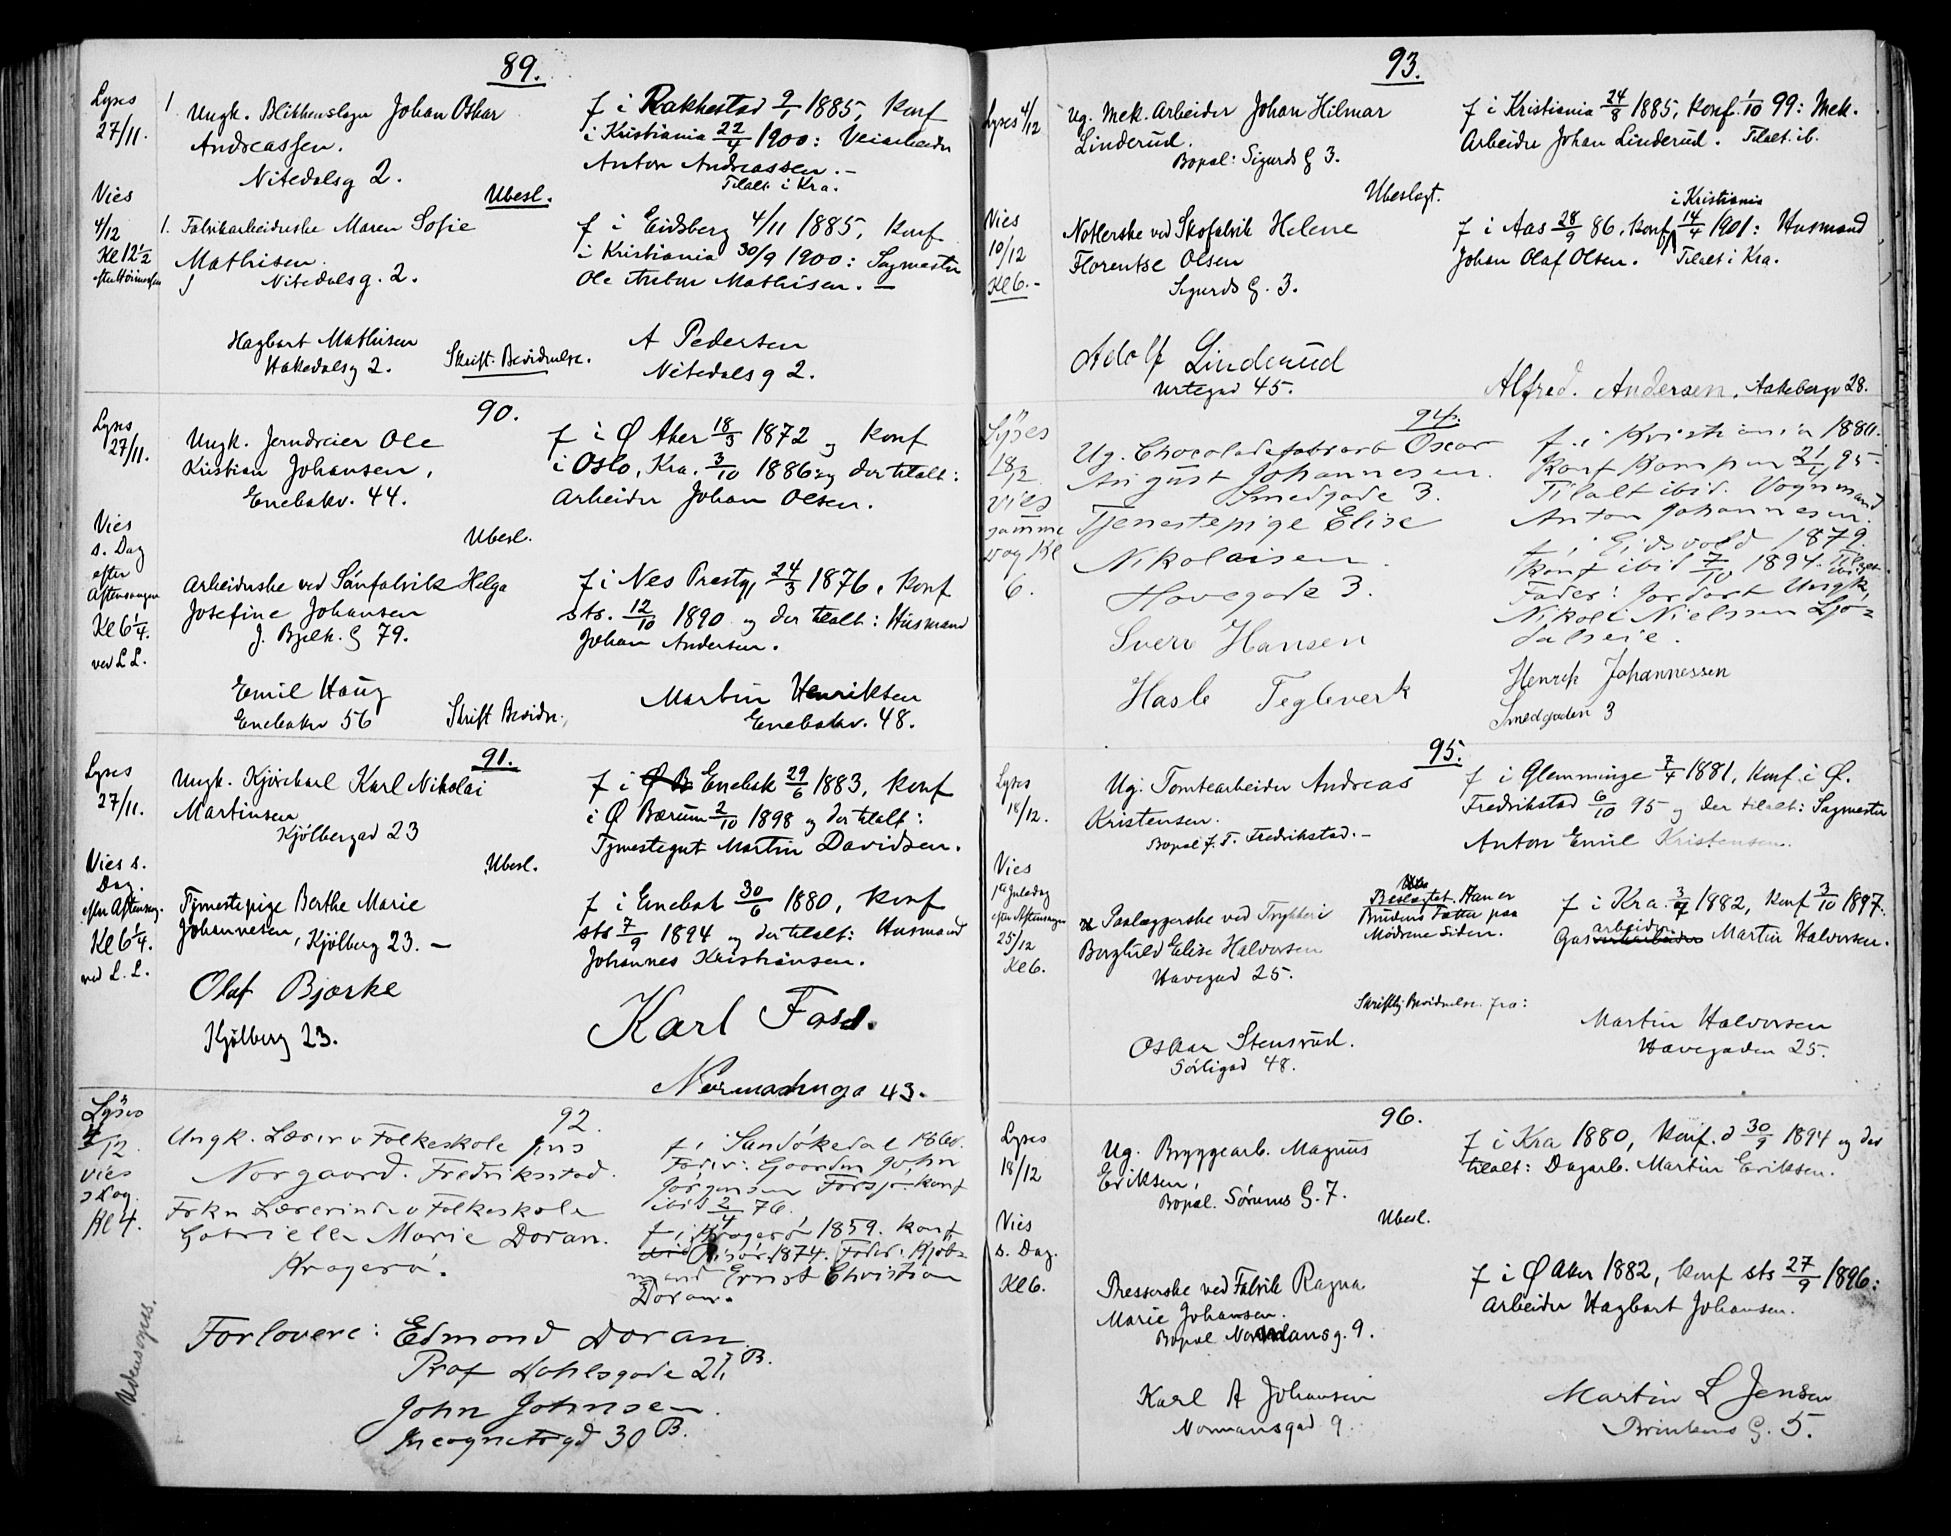 89.
Lyses
27/11.
1
Ungk. Blikkenslager Johan Oskar
Andreassen.
Nitedalsg 2.
f i Rakkestad 9/1 1885, Konf
i Kristiania 22/4 1900: Veiarbeider
Anton Andreassen.-
Tilalt i Kra.
Ubesl.
Vies
4/12
Kl 12 1/2
1. Fabrikarbeiderske Maren Sofie
Mathisen.
Nitedalsg. 2.
f i Eidsberg 4/11 1885, Konf
i Kristiania 30/9 1900: Sagmester
Ole Anton Mathisen. —
Hagbart Mathisen
Hakedalsg 2.
Skrift. Bevidnelse.
A Pedersen
Nitedalsg 2.
90.
Lyses
27/11.
Ungk. Jerndreier Ole
Kristian Johansen,
Enebakv. 44.
f i Ø Aker 18/3 1872 og Konf
i Oslo, Kra. 3/10 1886 og der tilalt:
Arbeider Johan Olsen.
Ubesl.
Vies
s. Dag
efter
Aftensangen
Kl 6 1/4.
ved L L.
Arbeiderske ved Sånfabrik Helga
Josefine Johansen
J. Bjelk. G 79.
f i Nes Prestg, 24/3 1876, Konf
sts. 12/10 1890 og der tilalt: Husmand
Johan Andersen.
Emil Haug
Enebakv 56
Skrift Bevidn.
Martin Henriksen
Enebakv. 48.
91.
Lyses
27/11.
Ungk. Kjørekarl Karl Nikolai
Martinsen
Kjølberggad 23
f i Ø B Enebak 29/6 1883, Konf
i Ø Bærum 2/10 1898 og der tilalt:
Tjenestegut Martin Davidsen.
Ubesl.
Vies s.
Dag.
efter Aftensg.
Kl 6 1/4.
ved L. L.
Tjenestepige Berthe Marie
Johannesen, Kjølberg 23. —
f i Enebak 30/6 1880, Konf
sts 7/9 1894 og der tilalt: Husmand
Johannes Kristiansen.
Olaf Bjørke
Kjølberg 23.
Karl Foss.
Normannsga 43.
92.
Lyses
4/12.
Vies
s Dag.
Kl 4.
Ungk. Lærer v Folkeskole Jens
Norgaard. Fredriksstad.
f i Sandökedal 1860.
Fader: Gaardm John
Jörgensen Forsjo. Konf
ibid 2/4 76.
Frkn Lærerinde v Folkeskole
Gabrielle Marie Doran.
Kragerö.
f i Kragerö 1859. Konf
ibid Risör 1874. Fader: Kjöb-
mand Ernst Christian
Doran.
Udensogns.
Forlovere: Edmond Doran
Prof Dahlsgade 21, B.
John Johnsen.
Incognitogd 30 B.
93.
Lyses 4/12
Ug. Mek. Arbeider Johan Hilmar
Linderud.
Bopæl: Sigurds G 3.
f i Kristiania 24/8 1885, Konf. 1/10 99: Mek.
Arbeider Johan Linderud. Tilalt. ib.
Ubeslagt.
Vies
10/12
Kl 6.-
Notlerske ved Skofabrik Helene
Florentse Olsen
Sigurds G. 3.
i Kristiania
f i Aas 28/9 86, Konf 14/4 1901: Husmand
Johan Olaf Olsen. Tilalt i Kra.
Adolf Linderud
Urtegad 45.
Alfred. Andersen, Aakebergv 28.
94.
Lyses
18/12
Vies
samme
Dag Kl
6.
Ug. Chocoladefabrarb Oscar
August Johannesen.
Smedgade 3.
f. i Kristiania 1880.
Konf Kampen 21/4 95.
Tilalt ibid. Vognmand
Anton Johannesen.
Tjenestepige Elise
Nikolaisen.
Havegade 3.
f. i Eidsvold 1879
Konf ibid 7/10 1894.
Fader: Jordarb Ungk,
Nikoli Nielssen Ljö-
dalseie.
Sverr Hansen
Hasle Teglverk
Henrik Johannessen
Smedgaden 3
95.
Lyses
18/12.
Ug. Tomtearbeider Andreas
Kristensen.
Bopæl f. T. Fredrikstad.-
f i Glemminge 7/4 1881, Konf. i Ø.
Fredrikstad 6/10 95 og der tilalt: Sagmester
Anton Emil Kristensen.
Vies
1ste Juledag
efter Aftensangen
25/12
Kl 6.
Paalæggerske ved Trykkeri
Borghild Elise Halvorsen
Havegad 25.
Beslægtet. Han er
Brudens Fætter paa
Mødrene Siden.
f i Kra. 3/4 1882, Konf 3/10 1897.
arbeider
Gasverkarbeider Martin Halvorsen.
Skriftlig Bevidnelse fra:
Oskar Stensrud.
Sörligad 48.
Martin Halvorsen
Havegaden 25.
96.
Lyses
18/12
Ug. Bryggearb. Magnus
Eriksen,
Bopæl. Sörums G. 7.
f i Kra 1880, Konf. d 30/9 1894 og der
tilalt: Dagarb. Martin Eriksen.
Ubesl.
Vies
s. Dag.
Kl 6.
Presserske ved Fabrik Ragna
Marie Johansen.
Bopæl Normansg. 9.
f i Ø Aker 1882, Konf sts 27/9 1896:
Arbeider Hagbart Johansen.
Karl A Johansen
Normansgad 9.
Martin L Jensen
Brinkens G. 5.